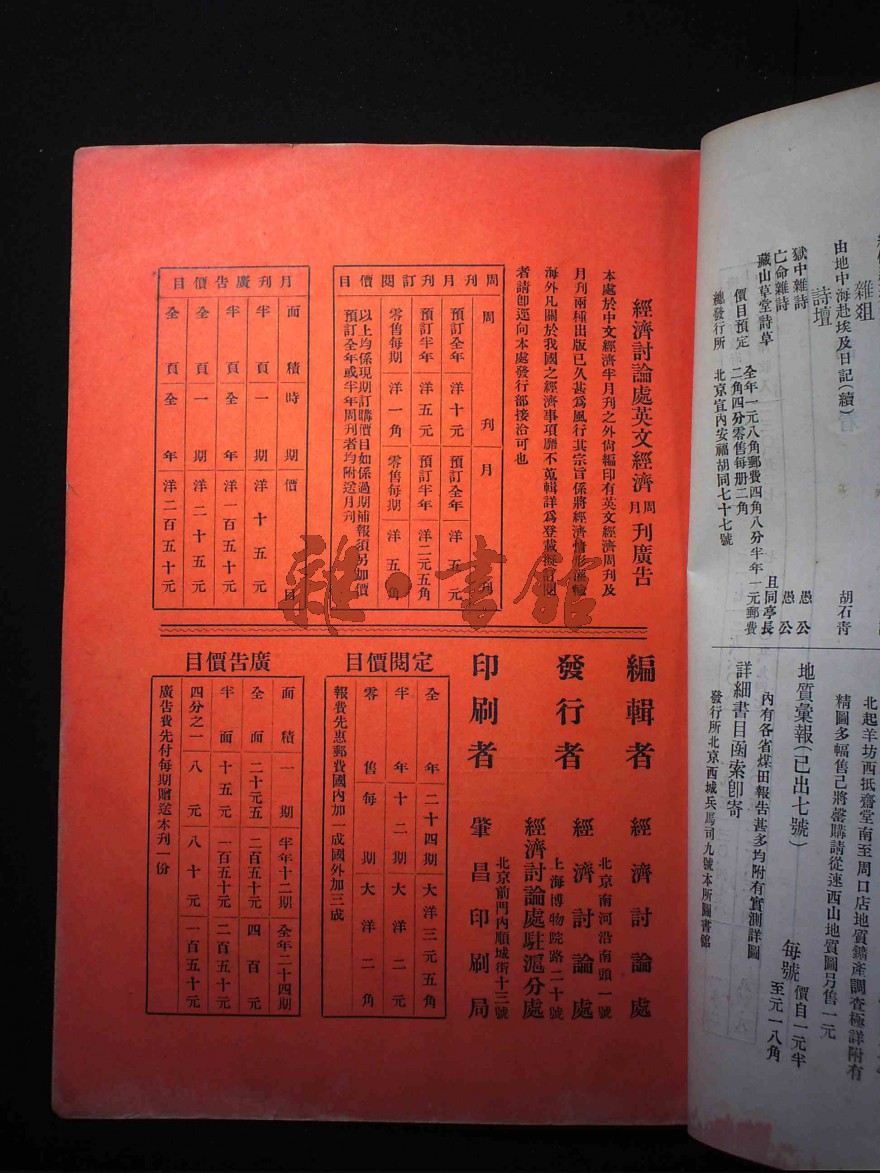 經濟討論處英文經濟周月刊廣告
本處於中文經濟半月刊之外尙編印有英文經濟周刊及
月刊兩種出版已久甚爲風行其宗旨係將經濟情形
海外凡關於我國之經濟事項靡不蒐輯詳爲登載
者請卽逕向本處發行部接洽可也
周刊月刊訂閱價目
周刊 月刊
預訂全年 洋十元 預訂全年 洋五元
預訂半年 洋五元 預訂半年 洋二元五角
零售每期 洋一角 零售每期 洋五角
以上均係現期訂購價目如係過期補報須另加價
預訂全年或半年周刊者均附送月刊
月刊廣告價目
面積 時期 價目
半頁 一期 洋十五元
半頁 全年 洋一百五十元
全頁 一期 洋二十五元
全頁 全年 洋二百五十元
編輯者 經濟討論處
北京南河沿南頭一號
發行者 經濟討論處
上海博物院路二十號
經濟討論處駐滬分處
北京前門內順城街十三號
印刷者 肇昌印刷局
定閱價目
全年 二十四期 大洋三元五角
半年 十二期 大洋二元
零售 每期 大洋二角
報費先惠郵費國內加一成國外加三成
廣告價目
面積 一期 半年十二期 全年二十四期
全面 二十元五 二百五十元 四百元
半面 十五元 一百五十元 二百五十元
四分之一 八元 八十元 一百五十元
廣告費先付每期贈送本刊一份
雜·書館
雜俎
由地中海赴埃及日記(續) 胡石青
詩壇
獄中雜詩 愚公
亡命雜詩 愚公
藏山草堂詩草 且同亭長
價目預定 全年一元八角郵費四角八分半年一元郵費
二角四分零售每册二角
總發行所 北京宣內安福胡同七十七號
北起羊坊西抵齋堂南至周口店地質鑛產調查極詳附有
精圖多幅售已將罄購請從速西山地質圖另售一元
地質彙報(已出七號) 每號 價自一元半
至元一八角
內有各省煤田報告甚多均附有實測詳圖
詳細書目函索卽寄
發行所北京西城兵馬司九號本所圖書館